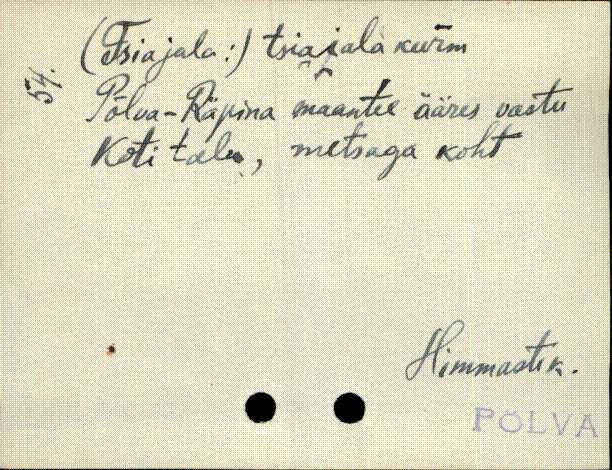 (Tsiajala:) tsiajala kurm
54.
Põlva-Räpina maantee ääres vastu
Koti talu, metsaga koht
Himmastek.
PÕLVA